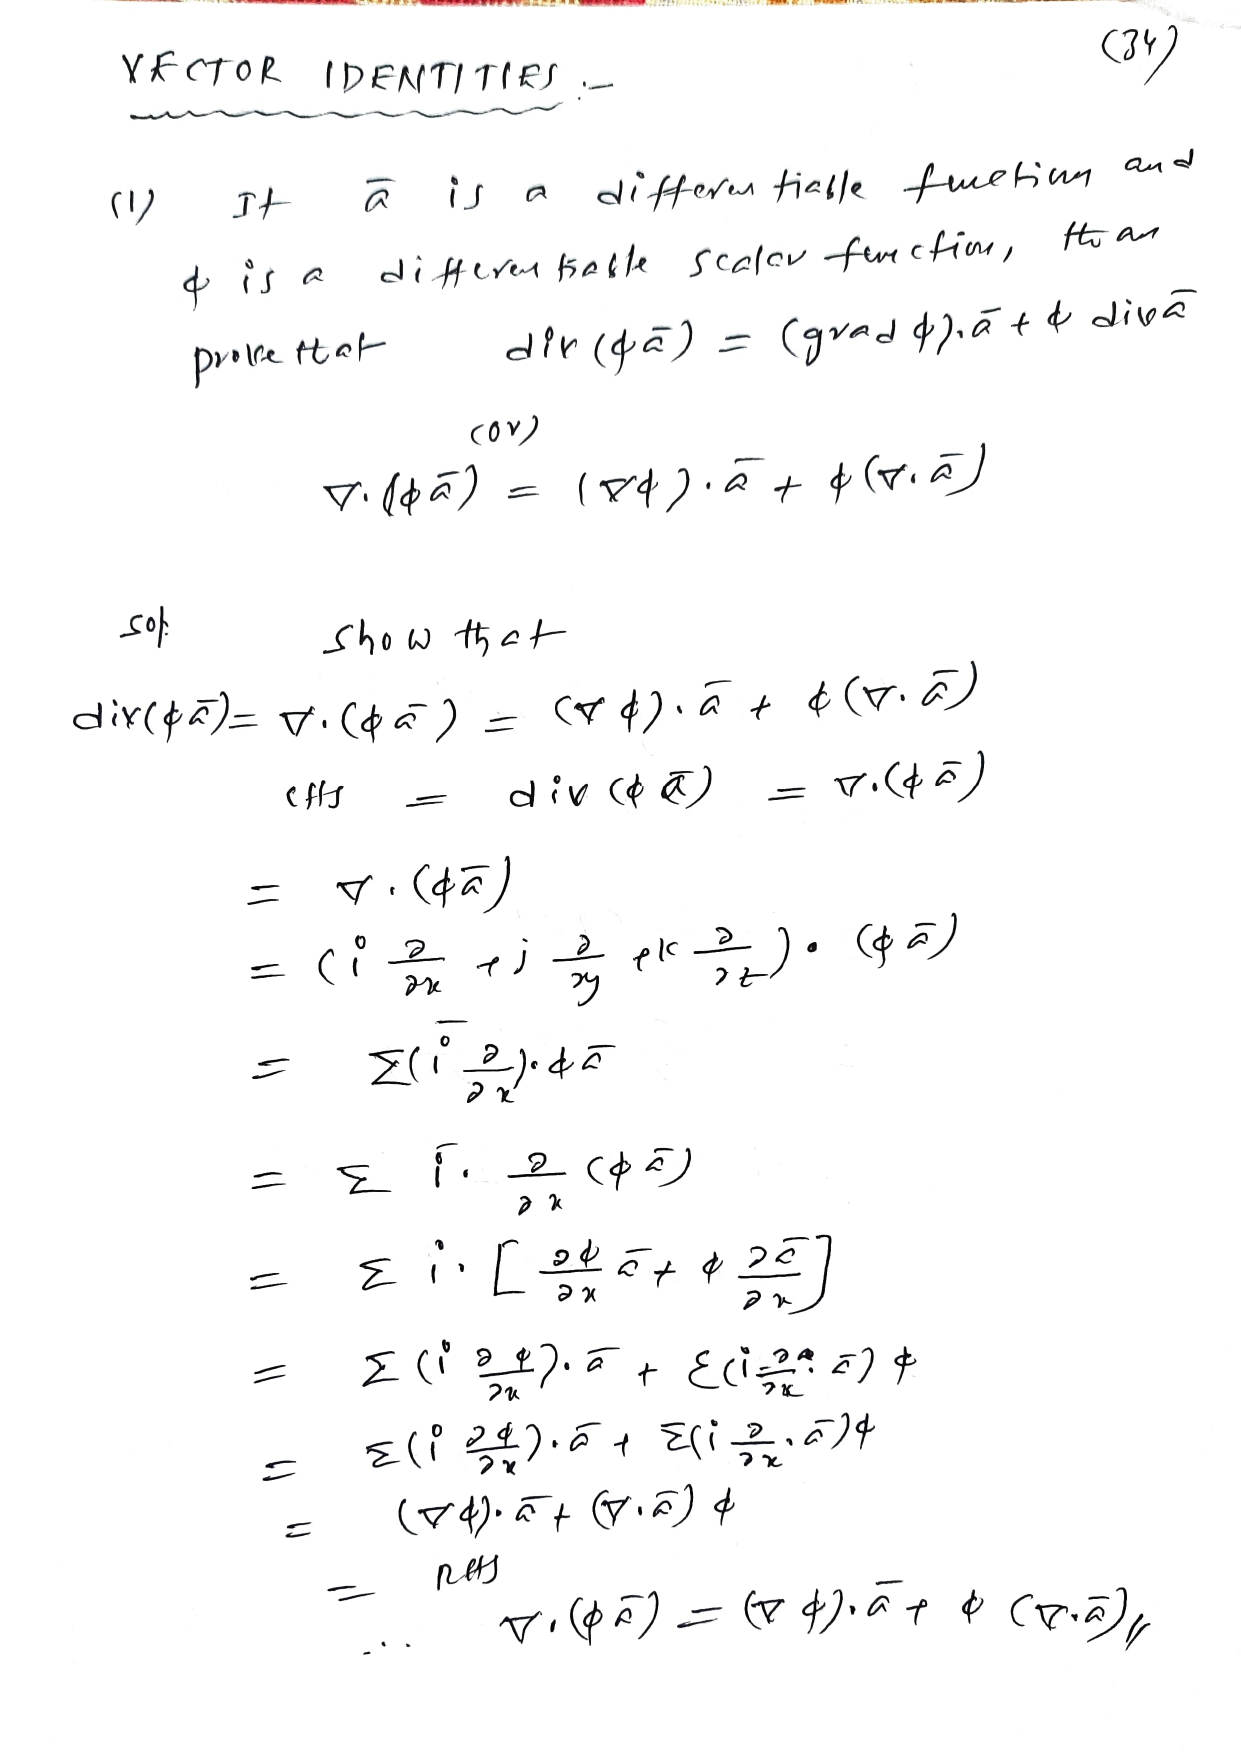 (34)
VECTOR IDENTITIES :-
(1) If ā is a differentiable function and
ϕ is a differentiable scalar function, then
prove that div (ϕā) = (grad ϕ).ā + ϕ div ā
(or)
∇.(ϕā) = (∇ϕ).ā + ϕ(∇.ā)
sol: Show that
div(ϕā) = ∇.(ϕā) = (∇ϕ).ā + ϕ(∇.ā)
LHS = div (ϕā) = ∇.(ϕā)
= ∇.(ϕā)
= (i ∂/∂x + j ∂/∂y + k ∂/∂z). (ϕā)
= Σ(ī ∂/∂x).ϕā
= Σ ī. ∂/∂x (ϕā)
= Σ i. [∂ϕ/∂x ā + ϕ ∂ā/∂x]
= Σ(i ∂ϕ/∂x).ā + Σ(i ∂/∂x. ā)ϕ
= Σ(i ∂ϕ/∂x).ā + Σ(i ∂/∂x.ā)ϕ
= (∇ϕ).ā + (∇.ā)ϕ
= RHS
∴ ∇.(ϕā) = (∇ϕ).ā + ϕ(∇.ā)//